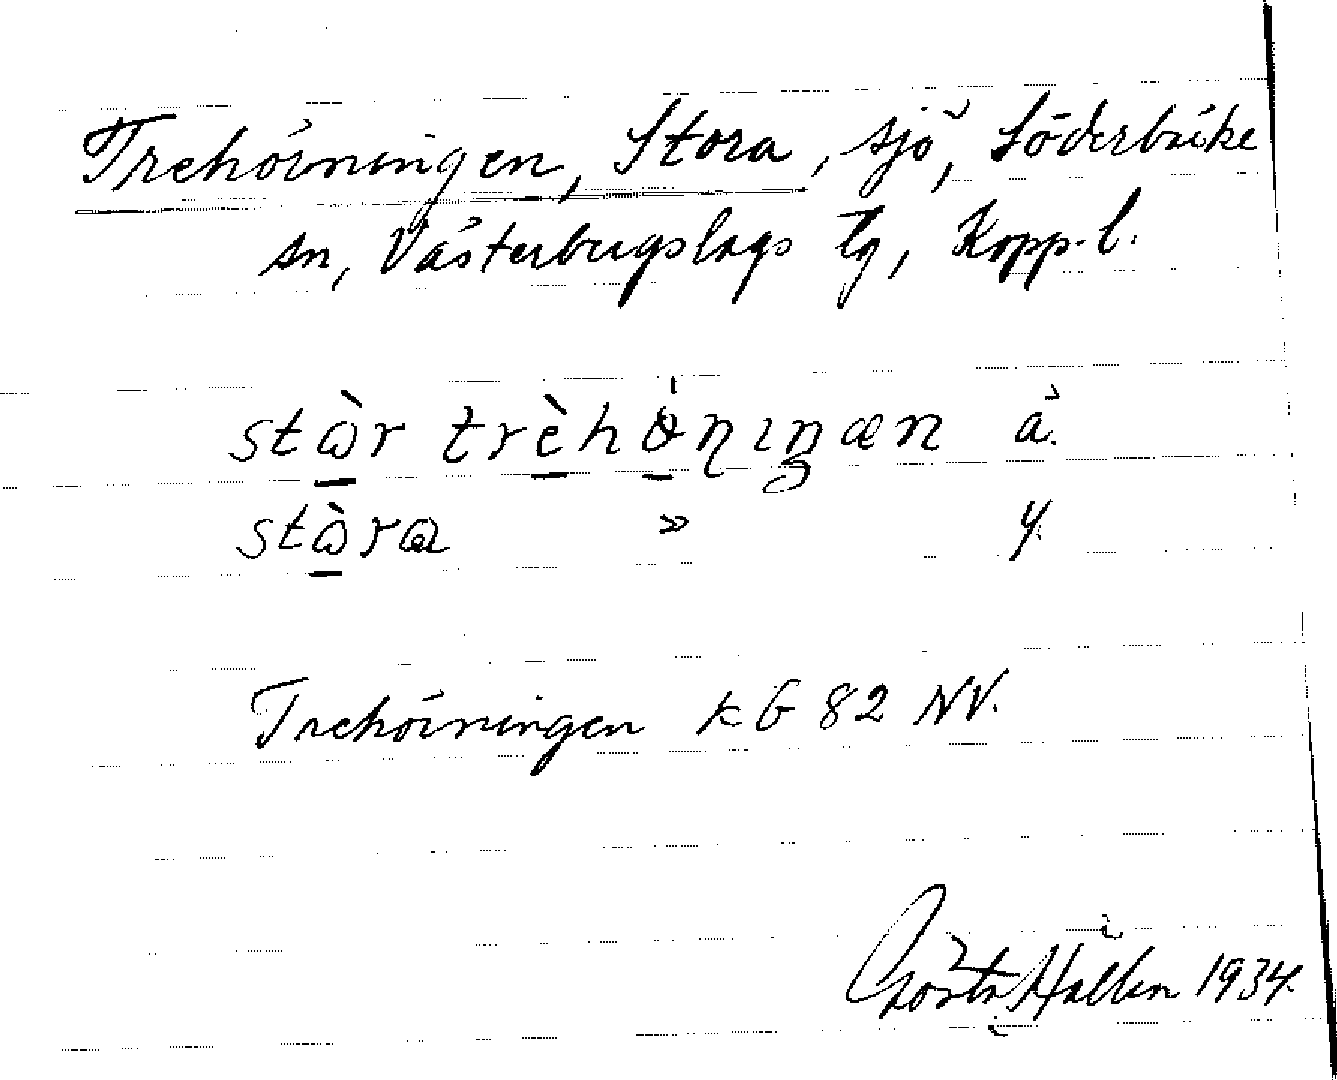 Trehörningen, Stora, sjö, Söderbärke
sn, Västerbergslags tg, Kopp. l.
stὼr trèhö́nıŋæn ä.
stὼra » y.
Trehörningen kG 82 NV.
Gösta Hallén 1934.